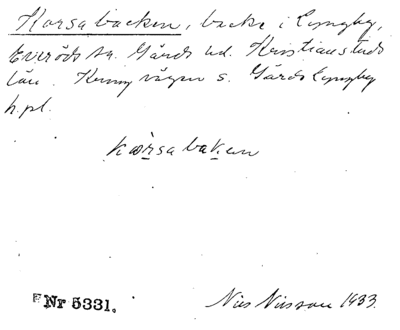 Korsabacken, backe i Lyngby,
Everöds sn. Gärds hd. Kristianstads
län. Kring vägen s. Gärds Lyngby
h.pl.
kɷrsabakɛn
Nr 5331.
Nils Nilsson 1933.